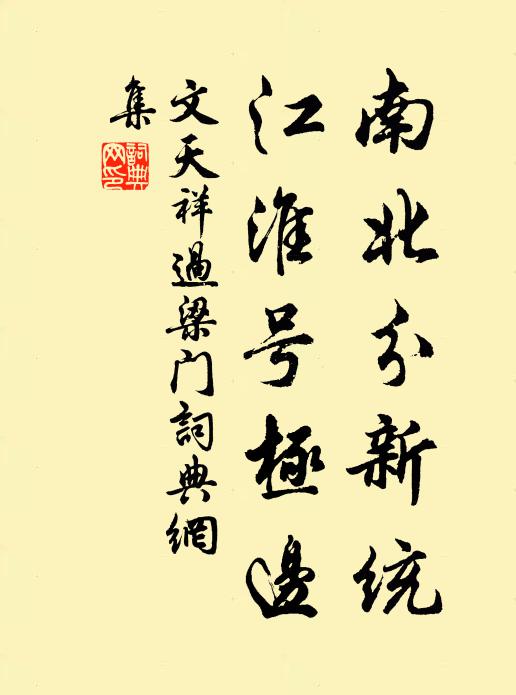 南北分新统
江淮号極邊
文天祥過梁门詞典網
集
詞典网印